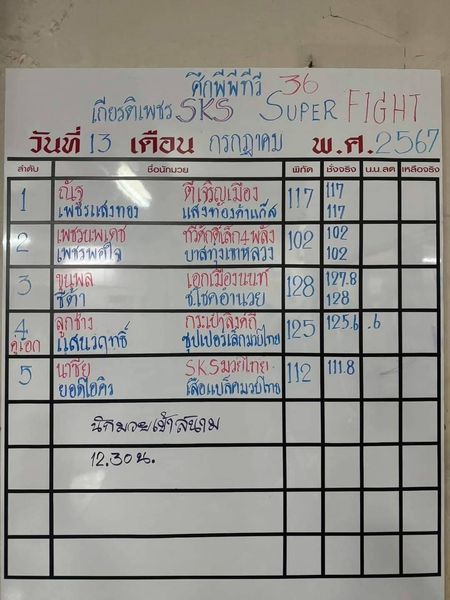 ศึกพีพีทีวี 36
เกียรติเพชร SKS SUPER FIGHT
วันที่ 13 เดือน กรกฎาคม พ.ศ. 2567
ลำดับ ชื่อนักมวย พิกัด ชั่งจริง น.น.ลด เหลือจริง
1 ณัฐ ตี๋เจริญเมือง 117 117
เพชรแสงทอง แสงทองคำแก๊ส 117
2 เพชรนพเดช ทวีศักดิ์เล็ก4พลัง 102 102
เพชรพลใจ บาสทุ่งเขาหลวง 102
3 ขุนพล เอกเมืองนนท์ 128 127.8
ซีต้า ช.โชคอำนวย 128
4 ลูกช้าง 125 125.6 .6
คู่เอก แสนวฤทธิ์ ซุปเปอร์เล็กมวยไทย
5 นาชัย SKSมวยไทย 112 111.8
ยอดไอคิว เสือแบล็คมวยไทย
นักมวยเข้าสนาม
12.30น.